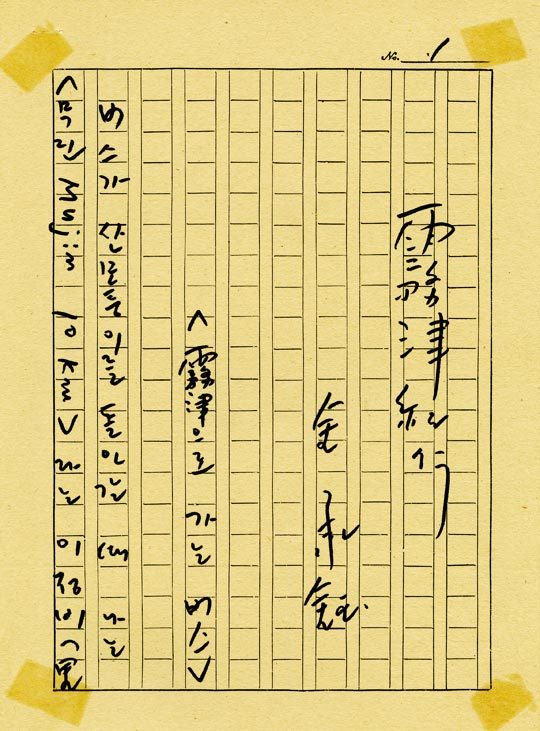 No. 1
霧津紀行
金承鈺
<霧津으로 가는 버스>
버스가 산모퉁이를 돌아갈 때 나는
<무진 Mujin 10 km>라는 이정비(里